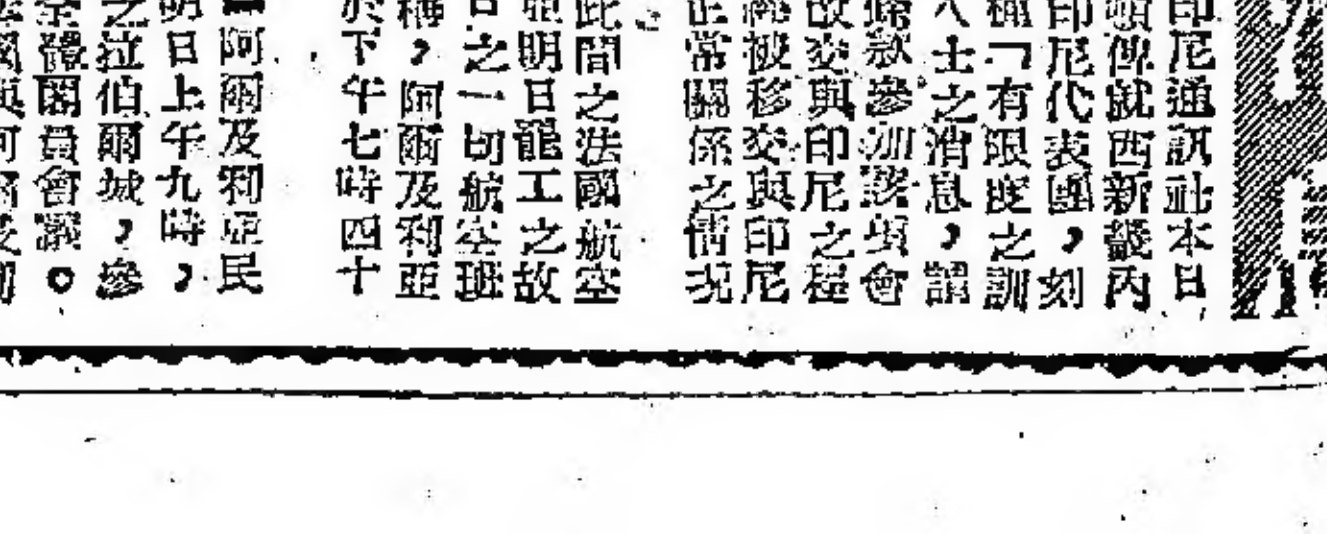 印尼通訊社本日
頓傳就西新畿內
印尼代表團，刻
種「有限度之訓
人士之消息，謂
條款參加該項會
故交與印尼之程
經被移交與印尼
正常關係之情況
此間之法國航空
亞明日罷工之故
日之一切航空班
稱，阿爾及利亞
於下午七時四十
阿爾及利亞民
明日上午九時，
之泣伯爾城，參
全體閣員會議。